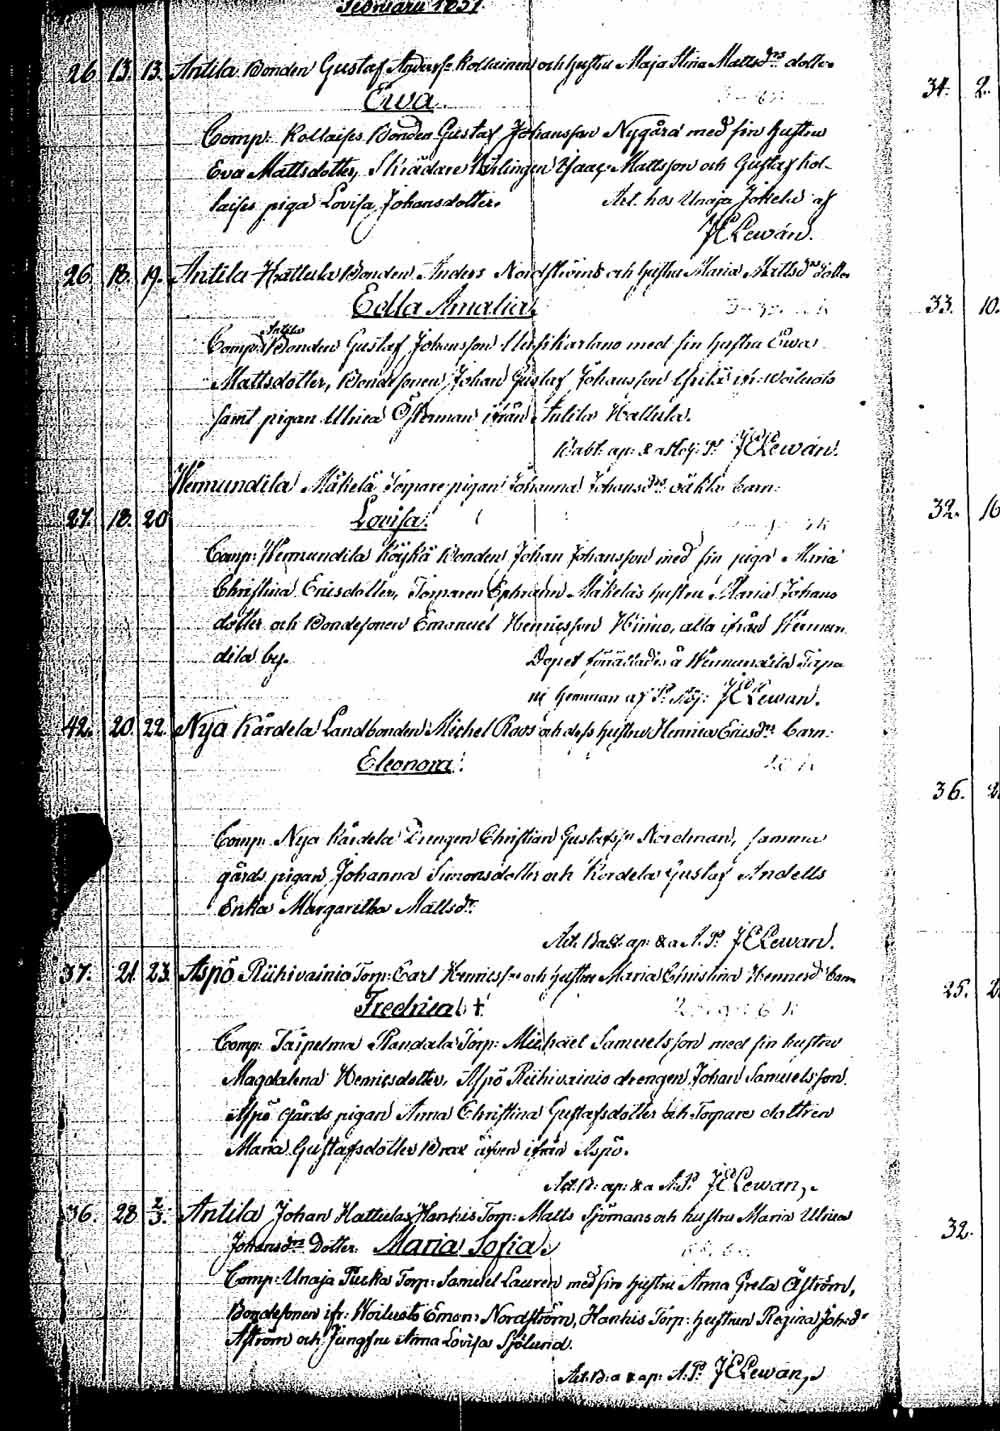 Februarii 1837.
26. 13. 13. Antila Bonden Gustaf Andersson Kollainen och hustru Maja Stina Mattsdrs dotter
Ewa.
34. 2.
Comp: Kollaises Bonden Gustaf Johansson Nygård med sin hustru
Eva Mattsdotter, Skrädare Isaac Mattsson och Gustaf Kol-
laises piga Lovisa Johansdotter. Act. hos Unaja Jokela af
JELewán.
26. 18. 19. Antila Hattula Bonden Anders Nordströms och hustru Maria Mattsdrs dotter
Edla Amalia.
33. 10.
Comp: Antila Bonden Gustaf Johansson med sin hustru Ewa
Mattsdotter, Bondesonen Johan Gustaf Johansson ifr: Woiluoto
samt pigan Ulrica Österman ifrån Antila Hattula.
JELewán.
Wermundila Mäkelä Torpare pigan Johanna Johansdrs oäkta barn:
27. 18. 20 Lovisa.
32. 16
Comp: Wermundila Köykä Bonden Johan Johansson med sin piga Maria
Christina Ericsdotter, Torparen Ephraim Mäkeläs hustru Maria Johans
dotter och Bondesonen Emanuel Henricsson Hinno, alla ifrån Wermun
dila by. Dopet förrättades å Wermundila Torpa
JELewan.
42. 20. 22. Nya Kårdela Landbonden Michel Roos och dess hustru Henrica Ericsdrs barn:
Eleonora.
36.
Comp: Nya Kårdela Drengen Christian Gustafsson Nordman, samma
gårds pigan Johanna Simonsdotter och Kordela Gustaf Andells
Erika Margaretha Mattsdr.
Act. Bapt. ap: & a A. Ps JELewan.
37. 21. 23. Aspö Riihivainio Torp: Carl Henricsson och hustru Maria Christina Henricsdr barn
Fredrica. †
25.
Comp: Taipelma Randala Torp: Michael Samuelsson med sin hustru
Magdalena Henricsdotter, Aspö Riihivainio drengen Johan Samuelsson
Aspö Gårds pigan Anna Christina Gustafsdotter och Torpare dottren
Maria Gustafsdotter Brax äfven ifrån Aspö.
Act. B: ap: & a A. Ps JELewan.
36. 28 2/3. Antila Johan Hattulas Hankis Torp: Matts Sjömans och hustru Maria Ulrica
Johansdrs Dotter. Maria Sofia.
32.
Comp: Unaja Puska Torp: Samuel Lauren med sin hustru Anna Greta Åström,
Bondesonen ifr: Woiluoto Eman: Nordström, Hankis Torp: hustrun Regina Johsdr
Åström och Jungfru Anna Lovisa Sjölund.
Act. B: a & ap: A. Ps JELewan.